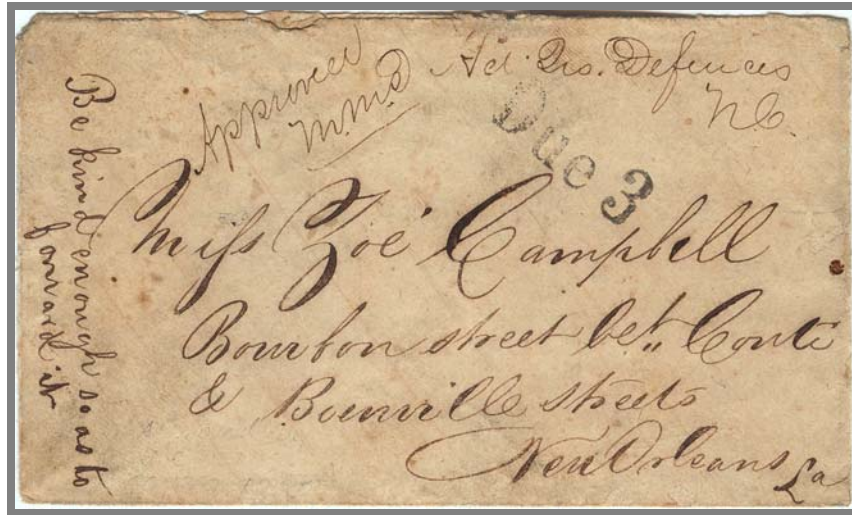 Approved
M.M.D
Hd. Qrs. Defences
N.O.
Due 3
Miss Zoé Campbell
Bourbon street bet,, Conti
& Bienville streets
New Orleans La
Be kind enough so as to
forward it